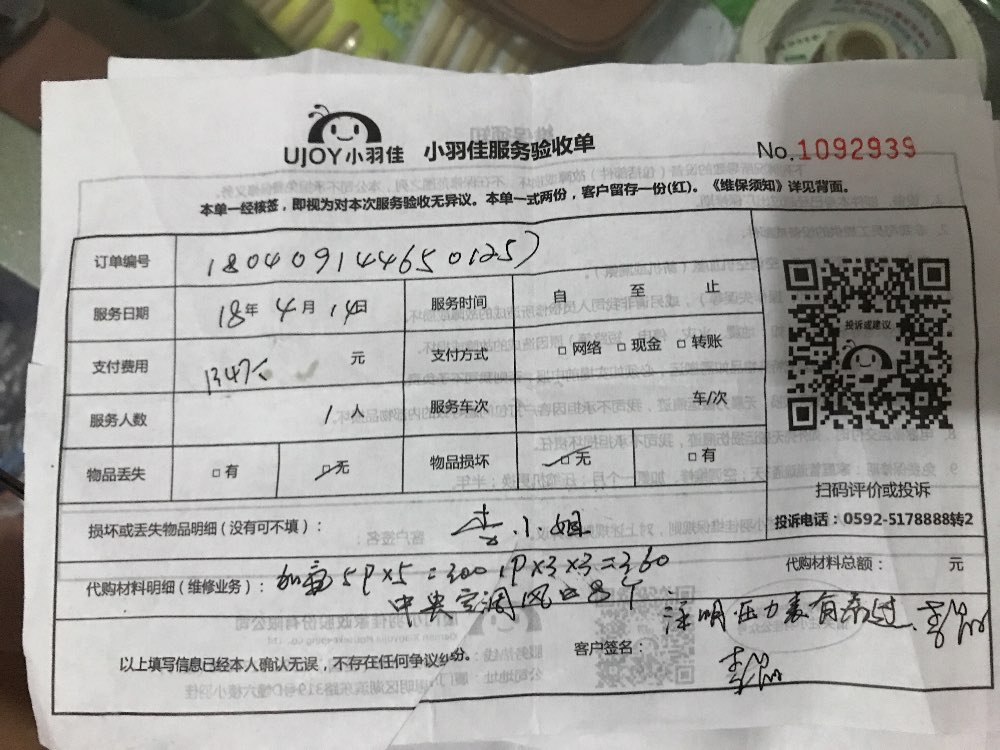 UJOY小羽佳 小羽佳服务验收单 No.1092939
本单一经核签，即视为对本次服务验收无异议。本单一式两份，客户留存一份(红)。《维保须知》详见背面。
订单编号 18040914465012
服务日期 18年 4月 14日 服务时间 自 至 止
支付费用 元 支付方式 □网络 □现金 □转账
投诉或建议
服务人数 1人 服务车次 车/次
物品丢失 □有 □无 物品损坏 □无 □有
扫码评价或投诉
损坏或丢失物品明细（没有可不填）： 小姐
投诉电话：0592-5178888转2
代购材料明细（维修业务）： 加氟 5P×5=300 1P×3×3=360
代购材料总额： 元
中央空调风口8个
注明压力表有亲过
以上填写信息已经本人确认无误，不存在任何争议纠纷。 客户签名：